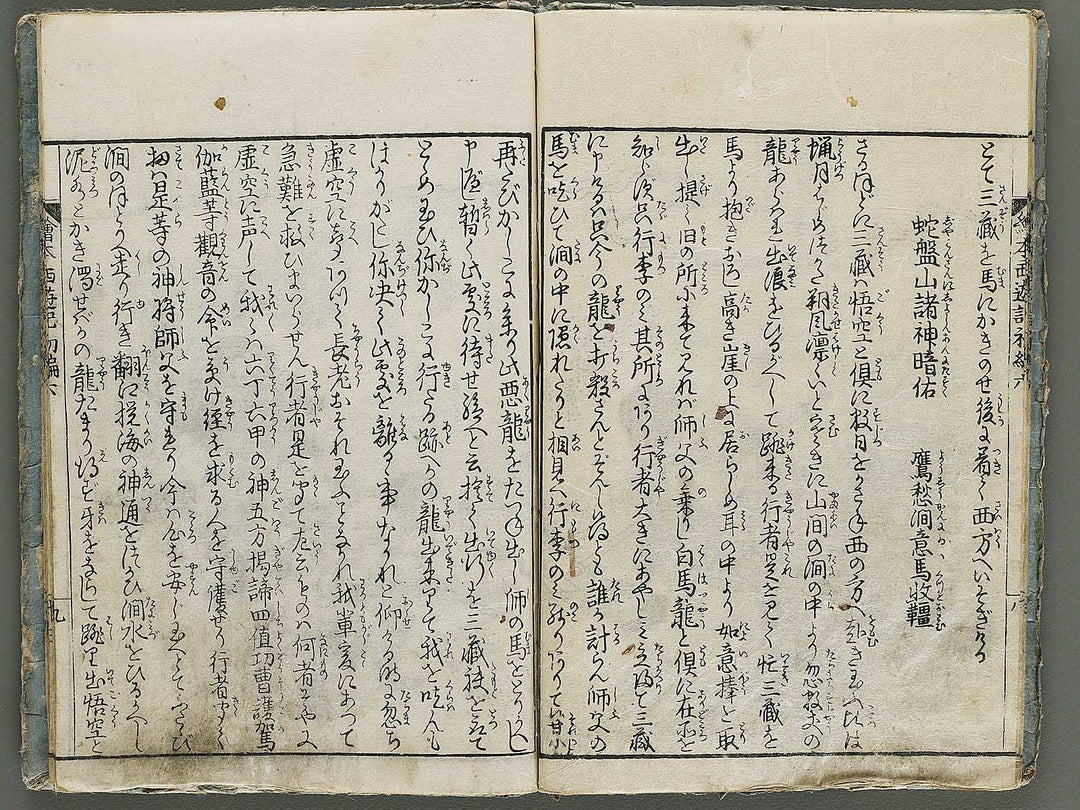 とて三藏を馬にかきのせ後に着て西方へいそぎける
蛇盤山諸神暗佑　鷹愁澗意馬收韁
さるほどに三藏ハ悟空と俱に数日をかさね西の方へ赴き玉ふに比は
臘月にて朔風凛くいと寒きに山澗の澗の中より忽数丈の
龍あらハれ出浪をひるがへして跳来る行者是を見て忙三藏を
馬より抱きおろし高き崖の上に居らしめ耳の中より如意捧を取
出し提て旧の所に来て見れハ師父の乗し白馬龍と俱に在所を
知らず只行李のミ其所にあり行者大きにあやしミ立帰て三藏
に申けるハ只今の龍を打殺さんとぞんじ候得ども誰か計らん師父の
馬を吃ひて澗の中に隠れたりと相見へ行李のミ残りありて
再たびかしこに至り此悪龍をたづね出し師の馬をとりかへし
申べし暫く此处に待せ給へと云捨て出行を三藏袂を
とらめ玉ひ你かしこに行たる跡へかの龍出来りて我を吃んも
はかりがたし你决して此处を離るゝ事なかれと仰ける時に忽ち
虚空に声ありて長老おそれ玉ふことなかれ我輩爰にあつて
急難を救ひまいらせん行者是を聞て左云ものハ何者ぞや
虚空に声して我々ハ六丁六甲の神五方揭諦四值功曹護駕
伽藍等觀音の命を受け経を求る人を守護せり行者聞て
扨ハ是等の神将師父を守まり今ハ心を安じ玉へとてふたゝび
澗のほとりへ走り行き翻江攪海の神通をつかひ澗水をひるがへし
泥水とかき濁せバかの龍たまり得ず牙をならして跳り出悟空と
繪本西遊記初編六
八
繪本西遊記初編六
九